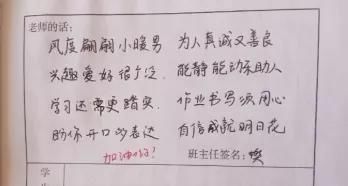 老师的话：
风度翩翩小暖男 为人真诚又善良
兴趣爱好很广泛 能静能动乐助人
学习还需更踏实 作业书写须用心
盼你开口多表达 自信成就明日花
加油
班主任签名：
学